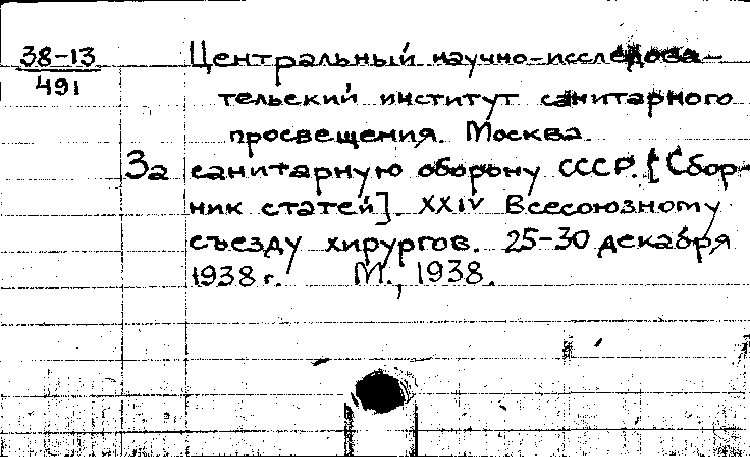 38-13
491
Центральный научно-исследова-
тельский институт санитарного
просвещения. Москва.
За санитарную оборону СССР. [Сбор-
ник статей]. XXIV Всесоюзному
съезду хирургов. 25-30 декабря
1938 г. М., 1938.